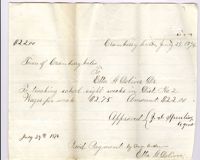 $22.00
Cranberry Isles July 29 1876
Town of Cranberry Isles
To Etta H. Dr.
To teaching school eight weeks in Dist. No 2
Wages per week $2.75 Amount $22.00
Approved
July 29th 1876
Recd Payment by
Etta H.